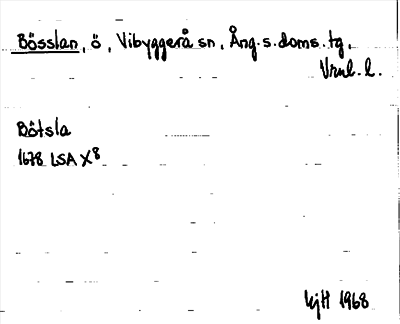 Bösslan, ö, Vibyggerå sn, Ång. s. doms. tg,
Vnl. l.
Bötsla
1678 LSA X8
kjH 1968